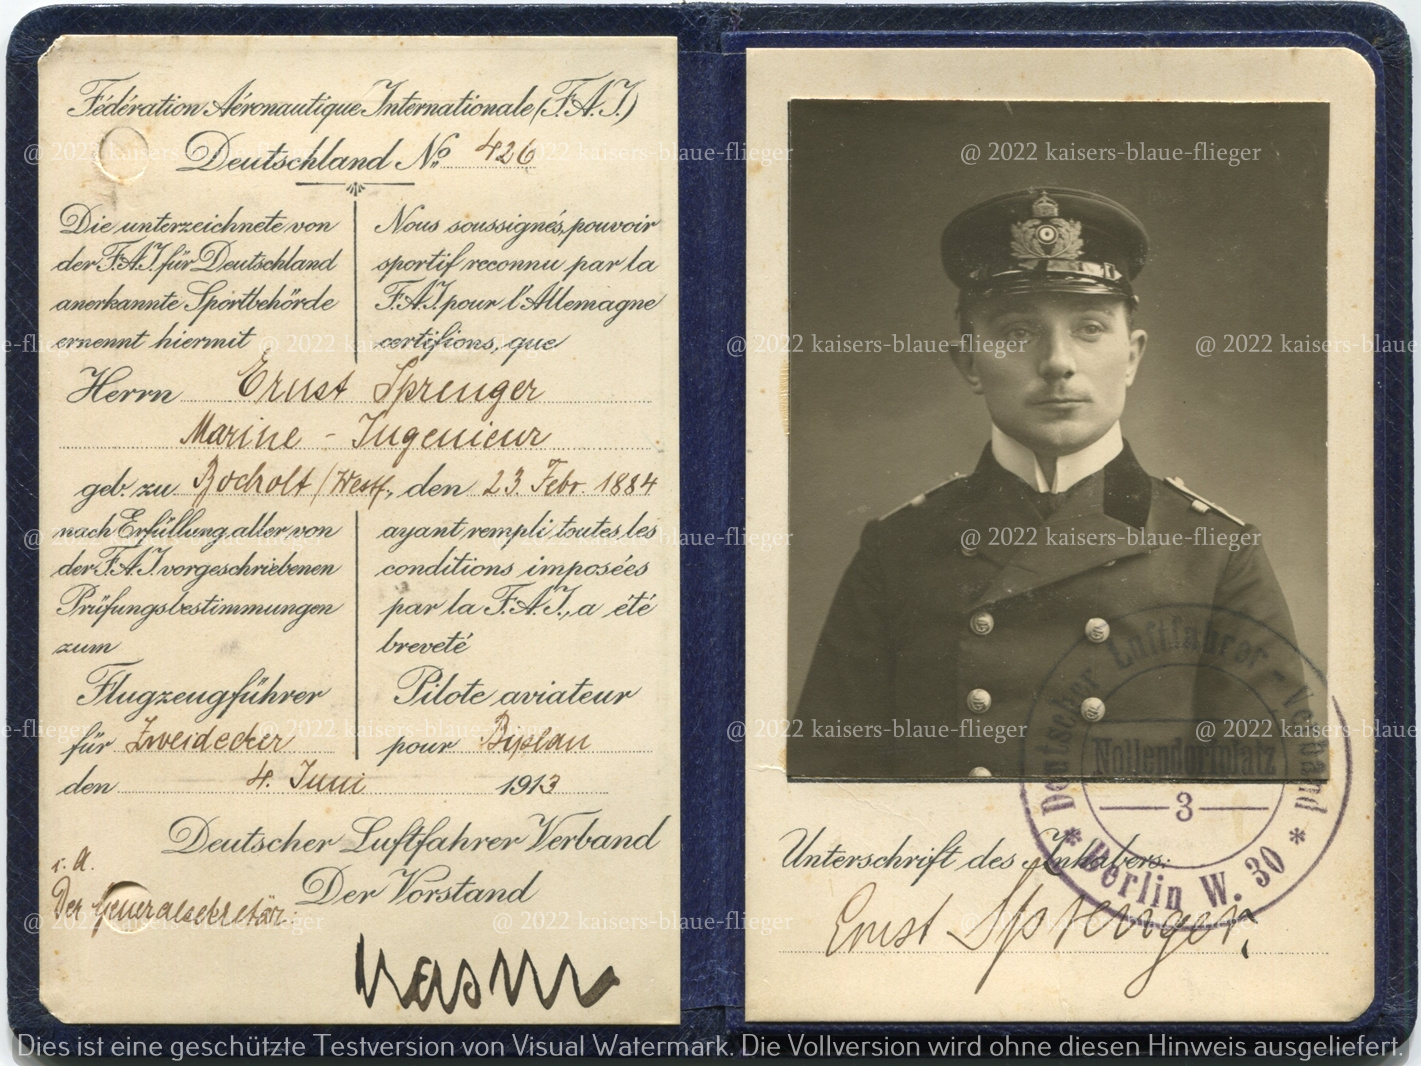 Fédération Aéronautique Internationale (F.A.I.)
Deutschland No. 426
Die unterzeichnete von
der F.A.I. für Deutschland
anerkannte Sportbehörde
ernennt hiermit
Nous soussignés, pouvoir
sportif reconnu par la
F.A.I. pour l'Allemagne
certifions, que
Herrn Ernst Sprenger
Marine-Ingenieur
geb. zu Bocholt /Westf., den 23. Febr. 1884
nach Erfüllung aller von
der F.A.I. vorgeschriebenen
Prüfungsbestimmungen
zum
Flugzeugführer
für Zweidecker
ayant rempli toutes les
conditions imposées
par la F.A.I., a été
breveté
Pilote aviateur
pour Biplan
den 4. Juni 1913
Deutscher Luftfahrer Verband
Der Vorstand
i. A.
Der Generalsekretär:
Deutscher Luftfahrer-Verband
Nollendorfplatz
3
* Berlin W. 30 *
Unterschrift des Inhabers:
Ernst Sprenger.
@ 2022 kaisers-blaue-flieger
Dies ist eine geschützte Testversion von Visual Watermark. Die Vollversion wird ohne diesen Hinweis ausgeliefert.